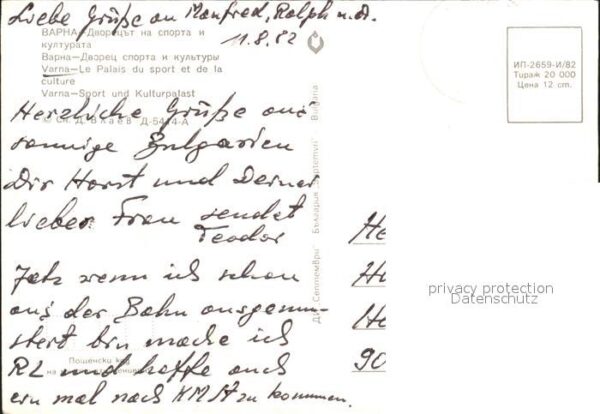 Liebe Grüße an Manfred, Ralph u. A.
11.8.82
ВАРНА—Дворецът на спорта и
културата
Варна—Дворец спорта и культуры
Varna—Le Palais du sport et de la
culture
Varna—Sport und Kulturpalast
Д-5414-А
Herzliche Grüße aus
sonnige Bulgarien
Dir Horst und Deiner
lieber Frau sendet
Teodor
Jetz wenn ich schon
aus der Bahn ausgemu-
stert bin mache ich
RL und hoffe auch
ein mal nach KMSt zu kommen.
Пощенски код
ДИ „Септември" България „Septemvri" Bulgaria
ИП-2659-И/82
Тираж 20 000
Цена 12 cm.
He
Ho
He
90
privacy protection
Datenschutz